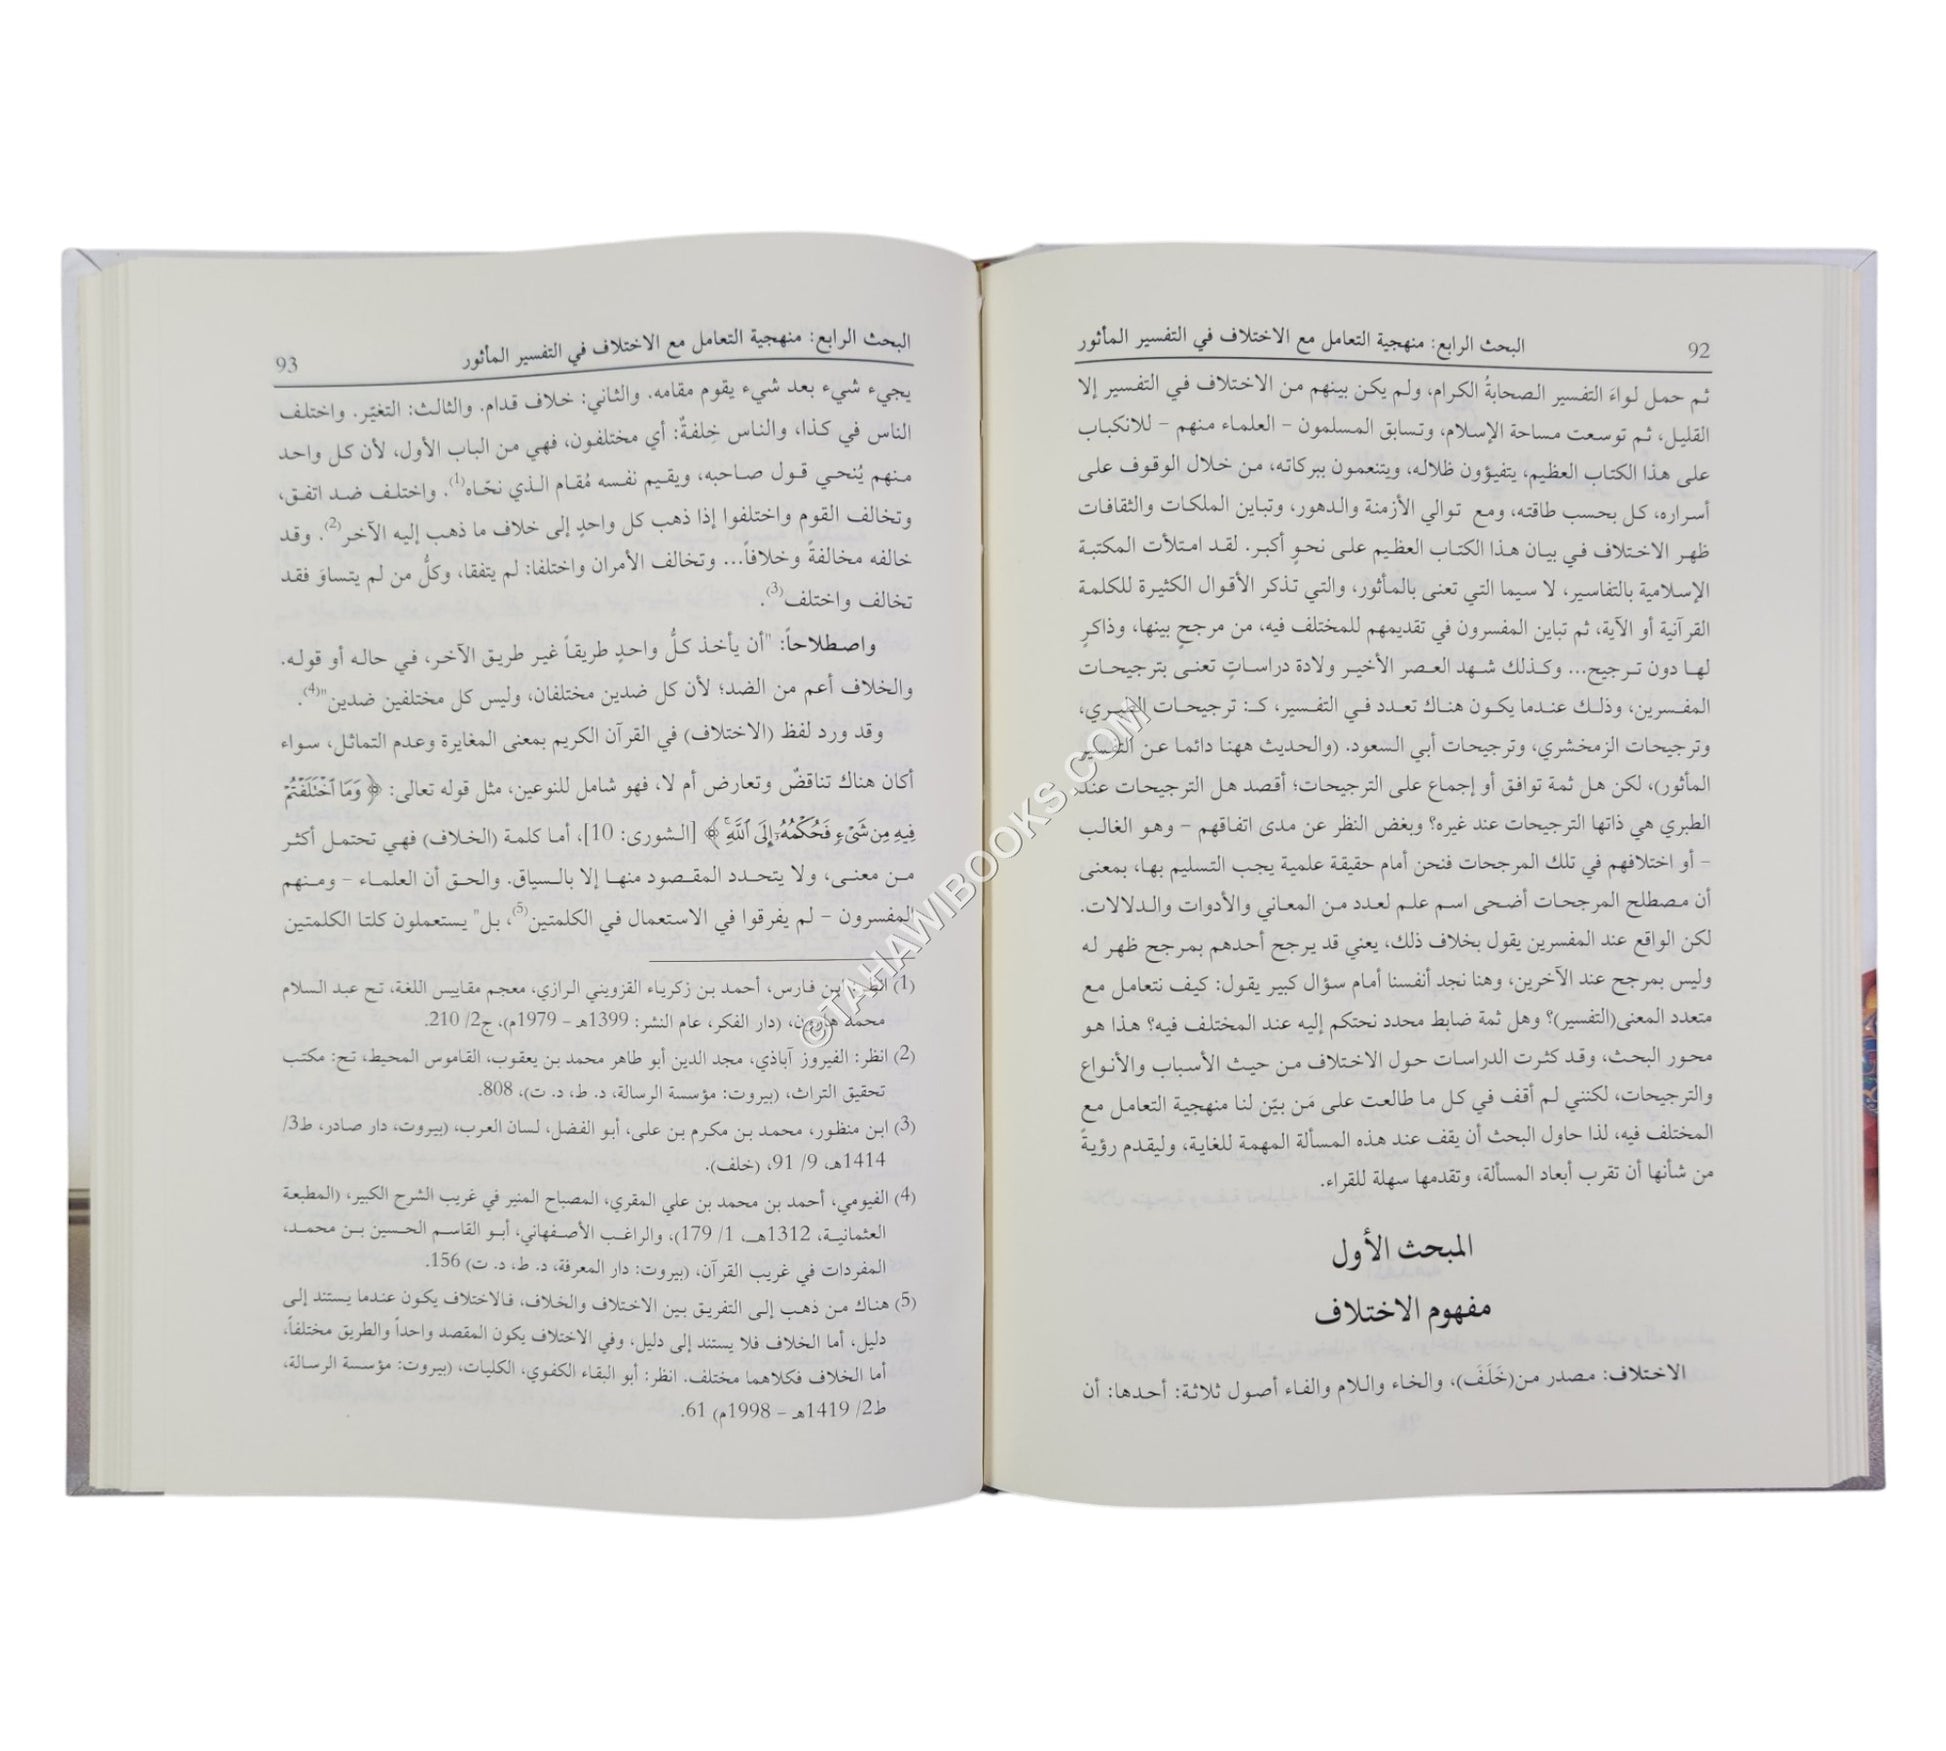 92
البحث الرابع: منهجية التعامل مع الاختلاف في التفسير المأثور
ثم حمل لواءَ التفسير الصحابةُ الكرام، ولم يكن بينهم من الاختلاف في التفسير إلا
القليل، ثم توسعت مساحة الإسلام، وتسابق المسلمون – العلماء منهم – للانكباب
على هذا الكتاب العظيم، يتفيؤون ظلاله، ويتنعمون ببركاته، من خلال الوقوف على
أسراره، كل بحسب طاقته، ومع توالي الأزمنة والدهور، وتباين الملكات والثقافات
ظهر الاختلاف في بيان هذا الكتاب العظيم على نحوٍ أكبر. لقد امتلأت المكتبة
الإسلامية بالتفاسير، لا سيما التي تعنى بالمأثور، والتي تذكر الأقوال الكثيرة للكلمة
القرآنية أو الآية، ثم تباين المفسرون في تقديمهم للمختلف فيه، من مرجحٍ بينها، وذاكرٍ
لها دون ترجيح... وكذلك شهد العصر الأخير ولادة دراساتٍ تعنى بترجيحات
المفسرين، وذلك عندما يكون هناك تعدد في التفسير، كـ: ترجيحات الطبري،
وترجيحات الزمخشري، وترجيحات أبي السعود. (والحديث ههنا دائما عن التفسير
المأثور)، لكن هل ثمة توافق أو إجماع على الترجيحات؛ أقصد هل الترجيحات عند
الطبري هي ذاتها الترجيحات عند غيره؟ وبغض النظر عن مدى اتفاقهم – وهو الغالب
– أو اختلافهم في تلك المرجحات فنحن أمام حقيقة علمية يجب التسليم بها، بمعنى
أن مصطلح المرجحات أضحى اسم علم لعدد من المعاني والأدوات والدلالات.
لكن الواقع عند المفسرين يقول بخلاف ذلك، يعني قد يرجح أحدهم بمرجح ظهر له
وليس بمرجح عند الآخرين، وهنا نجد أنفسنا أمام سؤال كبير يقول: كيف نتعامل مع
متعدد المعنى(التفسير)؟ وهل ثمة ضابط محدد نحتكم إليه عند المختلف فيه؟ هذا هو
محور البحث، وقد كثرت الدراسات حول الاختلاف من حيث الأسباب والأنواع
والترجيحات، لكنني لم أقف في كل ما طالعت على مَن بيّن لنا منهجية التعامل مع
المختلف فيه، لذا حاول البحث أن يقف عند هذه المسألة المهمة للغاية، وليقدم رؤيةً
من شأنها أن تقرب أبعاد المسألة، وتقدمها سهلة للقراء.
المبحث الأول
مفهوم الاختلاف
الاختلاف: مصدر من(خَلَفَ)، والخاء واللام والفاء أصول ثلاثة: أحدها: أن
البحث الرابع: منهجية التعامل مع الاختلاف في التفسير المأثور
93
يجيء شيء بعد شيء يقوم مقامه. والثاني: خلاف قدام. والثالث: التغيّر. واختلف
الناس في كذا، والناس خِلفةٌ: أي مختلفون، فهي من الباب الأول، لأن كل واحد
منهم يُنحي قول صاحبه، ويقيم نفسه مُقام الذي نحّاه(1). واختلف ضد اتفق،
وتخالف القوم واختلفوا إذا ذهب كل واحدٍ إلى خلاف ما ذهب إليه الآخر(2). وقد
خالفه مخالفةً وخلافاً... وتخالف الأمران واختلفا: لم يتفقا، وكلُّ من لم يتساوَ فقد
تخالف واختلف(3).
واصطلاحاً: "أن يأخذ كلُّ واحدٍ طريقاً غير طريق الآخر، في حاله أو قوله.
والخلاف أعم من الضد؛ لأن كل ضدين مختلفان، وليس كل مختلفين ضدين"(4).
وقد ورد لفظ (الاختلاف) في القرآن الكريم بمعنى المغايرة وعدم التماثل، سواء
أكان هناك تناقضٌ وتعارض أم لا، فهو شامل للنوعين، مثل قوله تعالى: ﴿ وَمَا ٱخْتَلَفْتُمْ
فِيهِ مِن شَىْءٍ فَحُكْمُهُۥٓ إِلَى ٱللَّهِ ۚ ﴾ [الشورى: 10]، أما كلمة (الخلاف) فهي تحتمل أكثر
من معنى، ولا يتحدد المقصود منها إلا بالسياق. والحق أن العلماء – ومنهم
المفسرون – لم يفرقوا في الاستعمال في الكلمتين(5)، بل" يستعملون كلتا الكلمتين
(1) انظر: ابن فارس، أحمد بن زكرياء القزويني الرازي، معجم مقاييس اللغة، تح عبد السلام
محمد هارون، (دار الفكر، عام النشر: 1399هـ – 1979م)، ج2/ 210.
(2) انظر: الفيروز آباذي، مجد الدين أبو طاهر محمد بن يعقوب، القاموس المحيط، تح: مكتب
تحقيق التراث، (بيروت: مؤسسة الرسالة، د. ط، د. ت)، 808.
(3) ابن منظور، محمد بن مكرم بن على، أبو الفضل، لسان العرب، (بيروت، دار صادر، ط3/
1414هـ، 9/ 91، (خلف).
(4) الفيومي، أحمد بن محمد بن علي المقري، المصباح المنير في غريب الشرح الكبير، (المطبعة
العثمانية، 1312هـ، 1/ 179)، والراغب الأصفهاني، أبو القاسم الحسين بن محمد،
المفردات في غريب القرآن، (بيروت: دار المعرفة، د. ط، د. ت) 156.
(5) هناك من ذهب إلى التفريق بين الاختلاف والخلاف، فالاختلاف يكون عندما يستند إلى
دليل، أما الخلاف فلا يستند إلى دليل، وفي الاختلاف يكون المقصد واحداً والطريق مختلفاً،
أما الخلاف فكلاهما مختلف. انظر: أبو البقاء الكفوي، الكليات، (بيروت: مؤسسة الرسالة،
ط2/ 1419هـ – 1998م) 61.
©TAHAWIBOOKS.COM